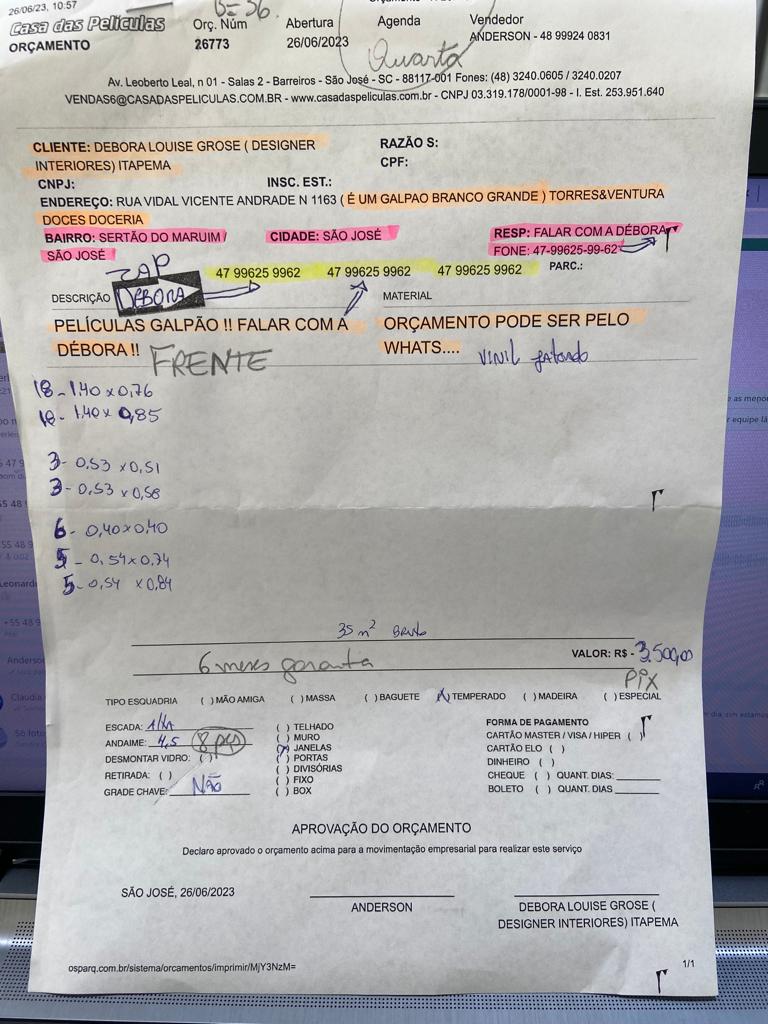 26/06/23, 10:57
Casa das Películas
ORÇAMENTO
Orç. Núm
26773
Abertura
26/06/2023
Agenda
Quarta
Vendedor
ANDERSON - 48 99924 0831
Av. Leoberto Leal, n 01 - Salas 2 - Barreiros - São José - SC - 88117-001 Fones: (48) 3240.0605 / 3240.0207
VENDAS6@CASADASPELICULAS.COM.BR - www.casadaspeliculas.com.br - CNPJ 03.319.178/0001-98 - I. Est. 253.951.640
CLIENTE: DEBORA LOUISE GROSE ( DESIGNER
INTERIORES) ITAPEMA
RAZÃO S:
CPF:
CNPJ:
INSC. EST.:
ENDEREÇO: RUA VIDAL VICENTE ANDRADE N 1163 ( É UM GALPAO BRANCO GRANDE ) TORRES&VENTURA
DOCES DOCERIA
BAIRRO: SERTÃO DO MARUIM/
SÃO JOSÉ
CIDADE: SÃO JOSÉ
RESP: FALAR COM A DÉBORA
FONE: 47-99625-99-62
ZAP
47 99625 9962 47 99625 9962 47 99625 9962 PARC.:
DESCRIÇÃO DEBORA
MATERIAL
PELÍCULAS GALPÃO !! FALAR COM A
DÉBORA !! FRENTE
ORÇAMENTO PODE SER PELO
WHATS.... VINIL jateado
18 - 1.40 x 0,76
18 - 1.40 x 0,85
3 - 0,53 x 0,51
3 - 0,53 x 0,58
6 - 0,40 x 0,40
5 - 0,54 x 0,74
5 - 0,54 x 0,84
35 m² Bruto
6 meses garantia
VALOR: R$ - 3.500,00
PIX
TIPO ESQUADRIA ( ) MÃO AMIGA ( ) MASSA ( ) BAGUETE (X) TEMPERADO ( ) MADEIRA ( ) ESPECIAL
ESCADA: Alta
ANDAIME: 4,5 8 pçs
DESMONTAR VIDRO: ( )
RETIRADA: ( )
GRADE CHAVE: NÃO
( ) TELHADO
( ) MURO
(X) JANELAS
( ) PORTAS
( ) DIVISÓRIAS
( ) FIXO
( ) BOX
FORMA DE PAGAMENTO
CARTÃO MASTER / VISA / HIPER ( )
CARTÃO ELO ( )
DINHEIRO ( )
CHEQUE ( ) QUANT. DIAS:
BOLETO ( ) QUANT. DIAS
APROVAÇÃO DO ORÇAMENTO
Declaro aprovado o orçamento acima para a movimentação empresarial para realizar este serviço
SÃO JOSÉ, 26/06/2023
ANDERSON
DEBORA LOUISE GROSE (
DESIGNER INTERIORES) ITAPEMA
osparq.com.br/sistema/orcamentos/imprimir/MjY3NzM=
1/1